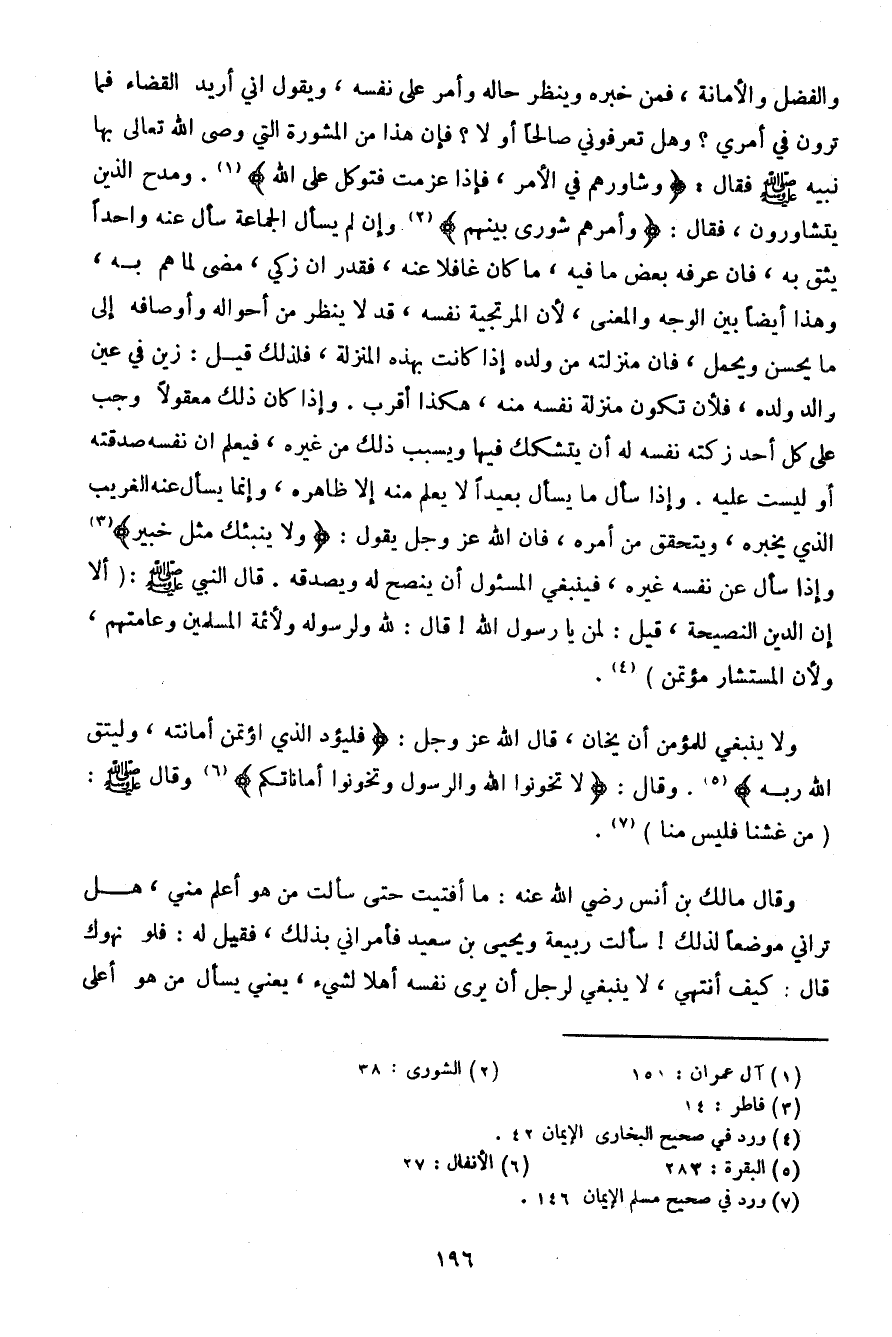 والفضل والأمانة ، فمن خبره وينظر حاله وأمر على نفسه ، ويقول اني أريد القضاء فما
ترون في أمري ؟ وهل تعرفوني صالحاً أو لا ؟ فإن هذا من المشورة التي وصى الله تعالى بها
نبيه ﷺ فقال : ﴿ وشاورهم في الأمر ، فإذا عزمت فتوكل على الله ﴾ (١) . ومدح الذين
يتشاورون ، فقال : ﴿ وأمرهم شورى بينهم ﴾ (٢) وإن لم يسأل الجماعة سأل عنه واحداً
يثق به ، فان عرفه بعض ما فيه ، ما كان غافلا عنه ، فقدر ان زكي ، مضى لما هم بـه ،
وهذا أيضاً بين الوجه والمعنى ، لأن المرتجية نفسه ، قد لا ينظر من أحواله وأوصافه إلى
ما يحسن ويحمل ، فان منزلته من ولده إذا كانت بهذه المنزلة ، فلذلك قيـل : زين في عين
والد ولده ، فلأن تكون منزلة نفسه منه ، هكذا أقرب . وإذا كان ذلك معقولاً وجب
على كل أحد زكته نفسه له أن يتشكك فيها ويسبب ذلك من غيره ، فيعلم ان نفسه صدقته
أو ليست عليه . وإذا سأل ما يسأل بعيداً لا يعلم منه إلا ظاهره ، وإنما يسأل عنه الغريب
الذي يخبره ، ويتحقق من أمره ، فان الله عز وجل يقول : ﴿ ولا ينبئك مثل خبير ﴾ (٣)
وإذا سأل عن نفسه غيره ، فينبغي المسئول أن ينصح له ويصدقه . قال النبي ﷺ :( ألا
إن الدين النصيحة ، قيل : لمن يا رسول الله ! قال : لله ولرسوله ولأئمة المسلمين وعامتهم ،
ولأن المستشار مؤتمن ) (٤) .
ولا ينبغي للمؤمن أن يخان ، قال الله عز وجل : ﴿ فليؤد الذي اؤتمن أمانته ، وليتق
الله ربـه ﴾ (٥) . وقال : ﴿ لا تخونوا الله والرسول وتخونوا أماناتكم ﴾ (٦) وقال ﷺ :
( من غشنا فليس منا ) (٧) .
وقال مالك بن أنس رضي الله عنه : ما أفتيت حتى سألت من هو أعلم مني ، هـل
تراني موضعاً لذلك ! سألت ربيعة ويحيى بن سعيد فأمراني بذلك ، فقيل له : فلو نهوك
قال : كيف أنتهي ، لا ينبغي لرجل أن يرى نفسه أهلا لشيء ، يعني يسأل من هو أعلى
(١) آل عمران : ١٥٠ (٢) الشورى : ٣٨
(٣) فاطر : ١٤
(٤) ورد في صحيح البخارى الإيمان ٤٢ .
(٥) البقرة : ٢٨٣ (٦) الأنفال : ٢٧
(٧) ورد في صحيح مسلم الإيمان ١٤٦ .
١٩٦